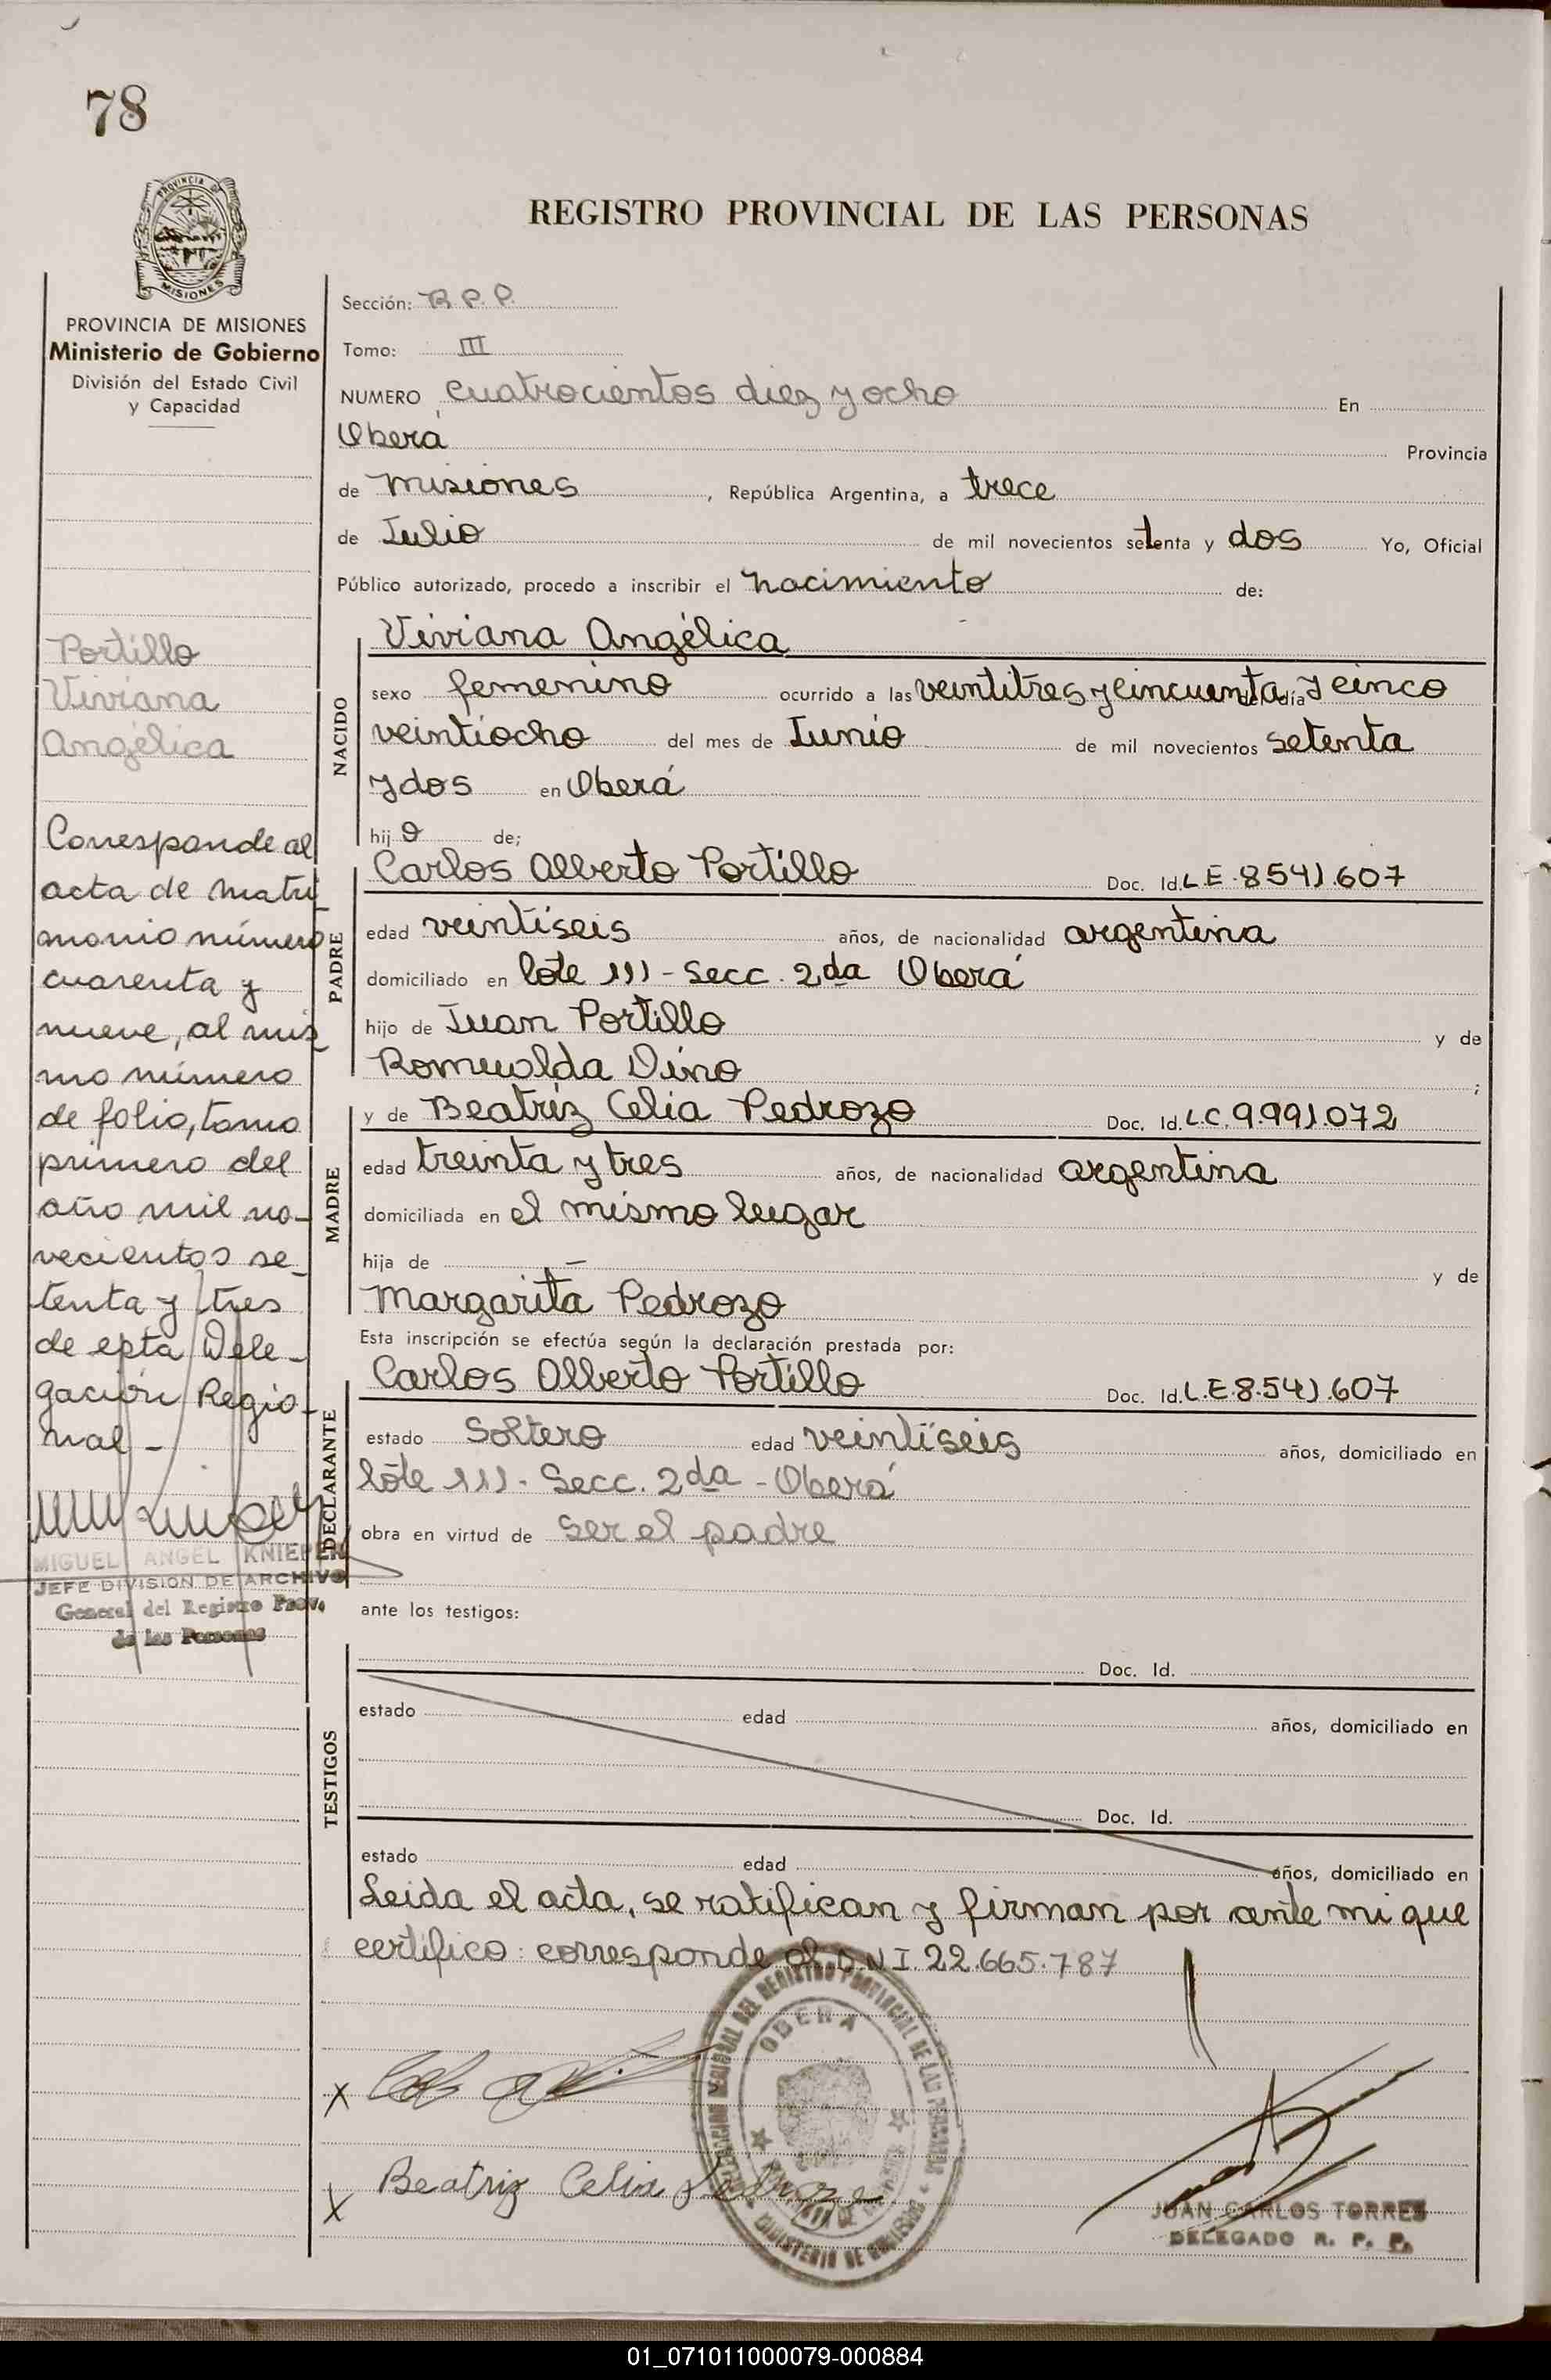 78
PROVINCIA DE
MISIONES
PROVINCIA DE MISIONES
Ministerio de Gobierno
División del Estado Civil
y Capacidad
Portillo
Viviana
Angélica
Corresponde al
acta de matri_
monio número
cuarenta y
nueve, al mis_
mo número
de folio, tomo
primero del
año mil no_
vecientos se_
tenta y tres
de esta Dele_
gación Regio_
nal -
MIGUEL ANGEL KNIEPEN
JEFE DIVISION DE ARCHIVO
General del Registro Prov.
de las Personas
REGISTRO PROVINCIAL DE LAS PERSONAS
Sección: R.P.P.
Tomo: III
NUMERO cuatrocientos diez y ocho En
Oberá Provincia
de Misiones, República Argentina, a trece
de Julio de mil novecientos setenta y dos Yo, Oficial
Público autorizado, procedo a inscribir el nacimiento de:
NACIDO
Viviana Angélica
sexo femenino ocurrido a las veintitres y cincuenta y cinco del día
veintiocho del mes de Junio de mil novecientos setenta
y dos en Oberá
hija de;
PADRE
Carlos Alberto Portillo Doc. Id. L.E. 8.541.607
edad veintiseis años, de nacionalidad argentina
domiciliado en lote 111 - Secc. 2da Oberá
hijo de Juan Portillo y de
Romualda Dino ;
MADRE
y de Beatriz Celia Pedrozo Doc. Id. L.C. 9.991.072
edad treinta y tres años, de nacionalidad argentina
domiciliada en el mismo lugar
hija de — y de
Margarita Pedrozo
Esta inscripción se efectúa según la declaración prestada por:
DECLARANTE
Carlos Alberto Portillo Doc. Id. L.E. 8.541.607
estado Soltero edad veintiseis años, domiciliado en
lote 111 - Secc. 2da - Oberá
obra en virtud de ser el padre
ante los testigos:
TESTIGOS
Doc. Id.
estado edad años, domiciliado en
Doc. Id.
estado edad años, domiciliado en
Leida el acta, se ratifican y firman por ante mi que
certifico: corresponde al D.N.I. 22.665.787
DEL REGISTRO PROVINCIAL DE LAS PERSONAS
OBERA
MINISTERIO DE GOBIERNO
X
X Beatriz Celia Pedrozo
JUAN CARLOS TORRES
DELEGADO R. P. P.
01_071011000079-000884